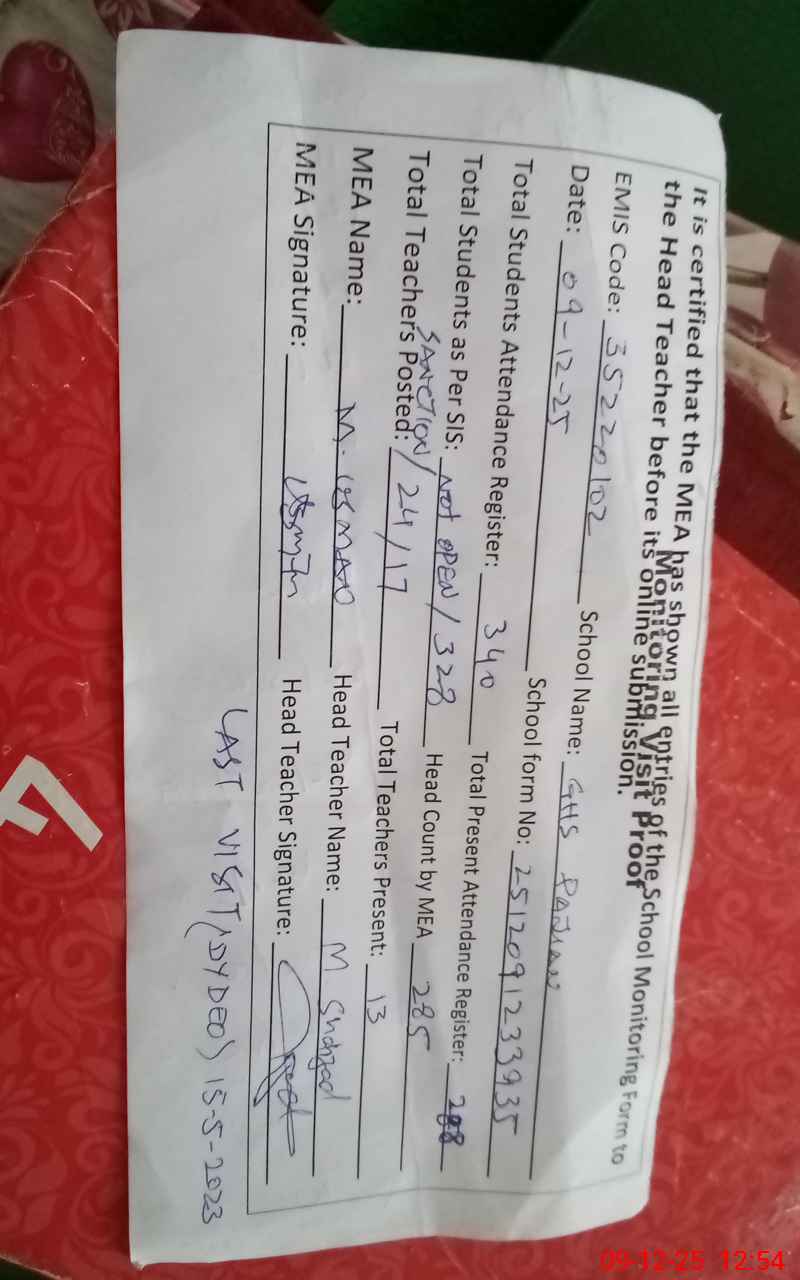 Monitoring Visit Proof
It is certified that the MEA has shown all entries of the School Monitoring Form to
the Head Teacher before its online submission.
EMIS Code: 35220102 School Name: GHS PAJIAN
Date: 09-12-25 School form No: 251209123 3935
Total Students Attendance Register: 340 Total Present Attendance Register: 288
Total Students as Per SIS: Not OPEN/328 Head Count by MEA 285
SANCTION/
Total Teachers Posted: 24/17 Total Teachers Present: 13
MEA Name: M. USMAN Head Teacher Name: M Shahzad
MEA Signature: Usman Head Teacher Signature:
LAST VISIT (DYDEO) 15-5-2023
7
09-12-25 12:54